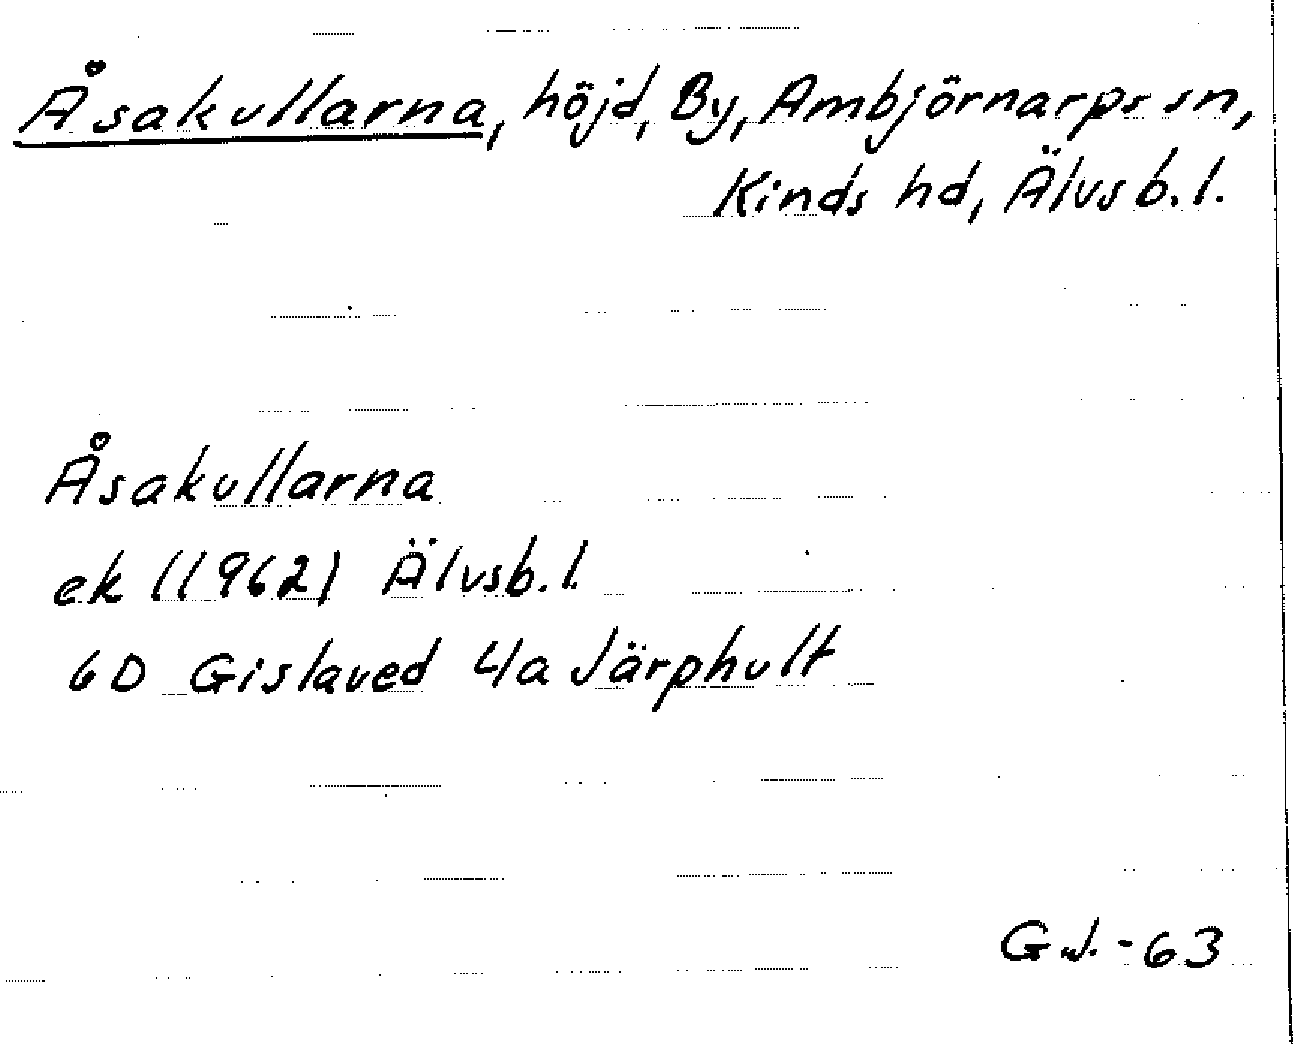 Åsakullarna, höjd, By, Ambjörnarps sn,
Kinds hd, Älvsb. l.
Åsakullarna
ek (1962) Älvsb. l.
6D Gislaved 4a Järphult
G.J. -63